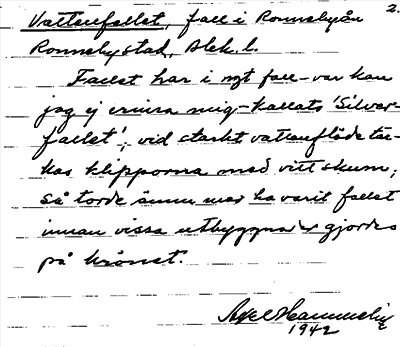 2.
Vattenfallet, fall i Ronnebyån
Ronneby stad, Blek. l.
Fallet har i ngt fall - var kan
jag ej erinra mig - kallats 'Silver-
fallet'; vid starkt vattenflöde täc-
kas klipporna med vitt skum;
så torde ännu mer ha varit fallet
innan vissa utbyggnader gjordes
på krönet.
Axel
1942